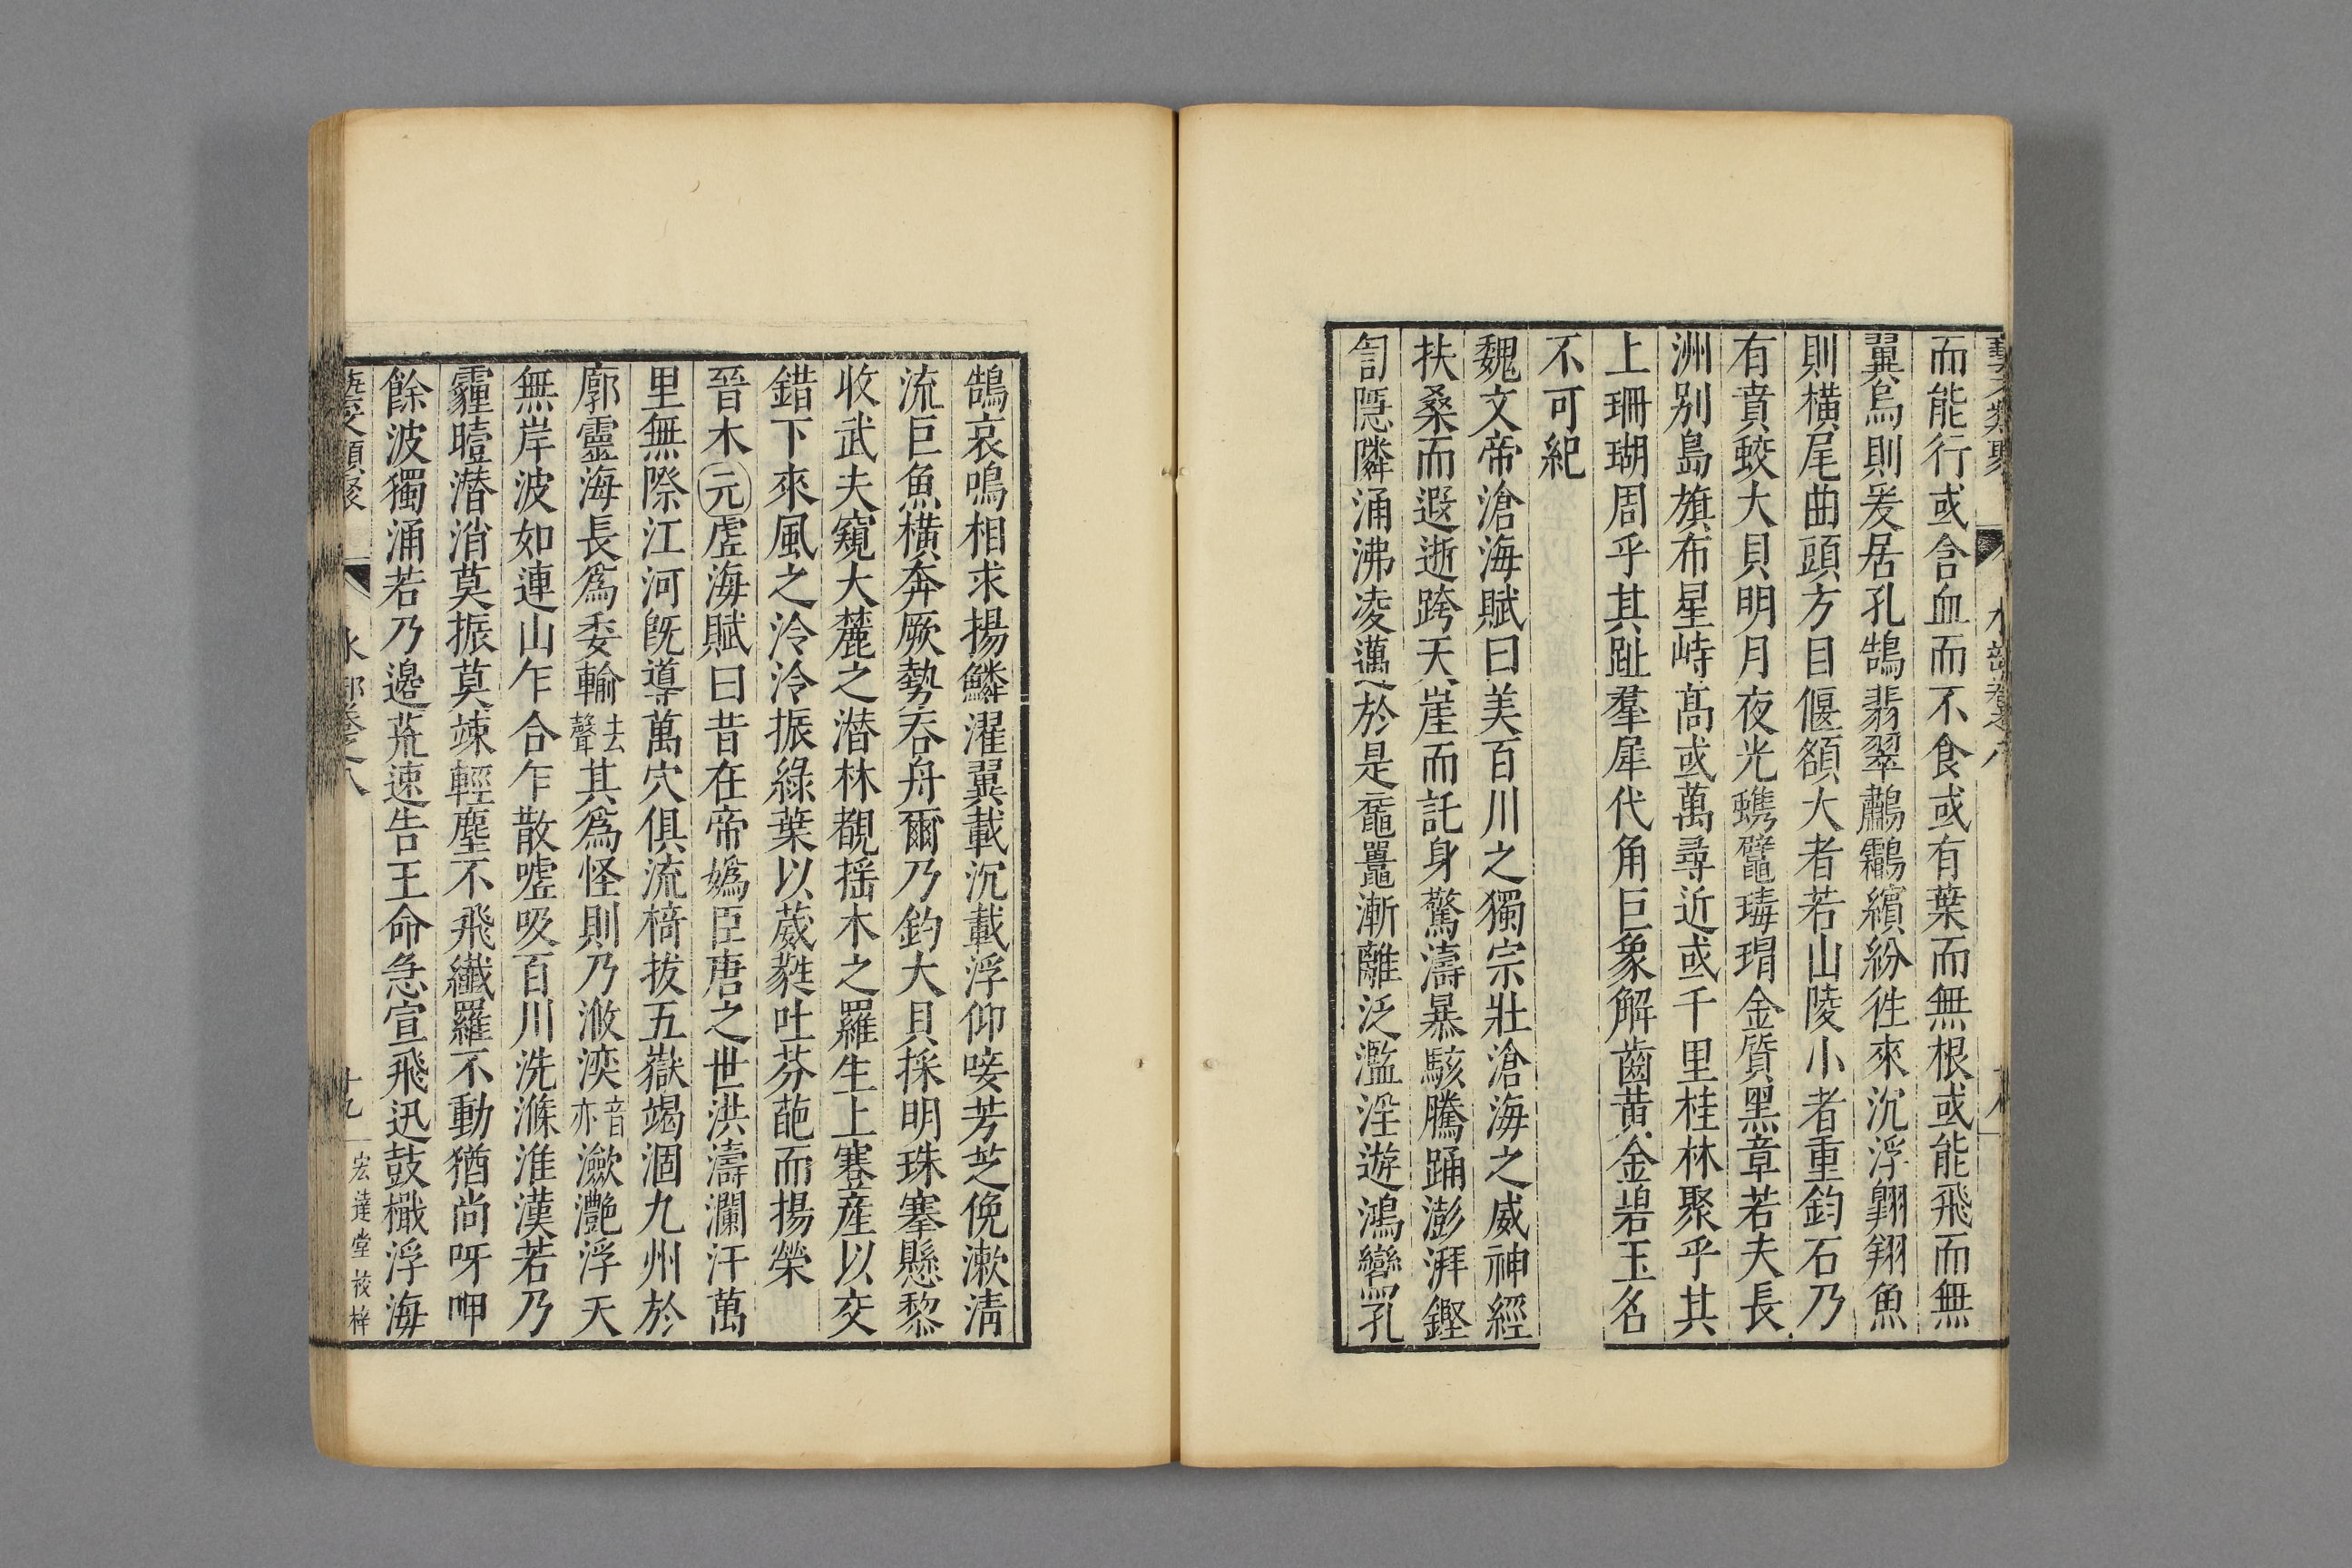 而能行或含血而不食或有葉而無根或能飛而無
翼烏則爰居孔鵠翡翠鷫鸘繽紛徃來沉浮翺翔魚
則橫尾曲頭方目偃額大者若山陵小者重鈞石乃
有賁蛟大貝明月夜光蠵鼊瑇瑁金質黑章若夫長
洲别島旗布星峙髙或萬尋近或千里桂林聚乎其
上珊瑚周乎其趾羣犀代角巨象解齒黄金碧玉名
不可紀
魏文帝滄海賦曰美百川之獨宗壯滄海之威神經
扶桑而遐逝跨天崖而託身驚濤暴駭騰踊澎湃鏗
訇隱隣涌沸凌邁於是黿鼉漸離泛濫淫遊鴻鸞孔
鵠哀鳴相求揚鱗濯翼載沉載浮仰唼芳芝俛漱淸
流巨魚橫奔厥勢吞舟爾乃釣大貝採明珠搴懸黎
收武夫窺大麓之潜林覩揺木之羅生上蹇産以交
錯下來風之泠泠振綠葉以葳蕤吐芬葩而揚榮
晉木元虛海賦曰昔在帝嬀臣唐之世洪濤瀾汗萬
里無際江河旣導萬穴俱流掎拔五嶽竭涸九州於
廓靈海長爲委輸去聲其爲怪則乃浟湙音亦瀲灔浮天
無岸波如連山乍合乍散噓吸百川洗滌淮漢若乃
霾曀潜消莫振莫竦輕塵不飛纎羅不動猶尚呀呷
餘波獨涌若乃邊荒速告王命急宣飛迅鼓檝浮海
藝文類聚 水部卷之八 十九 宏達堂校梓